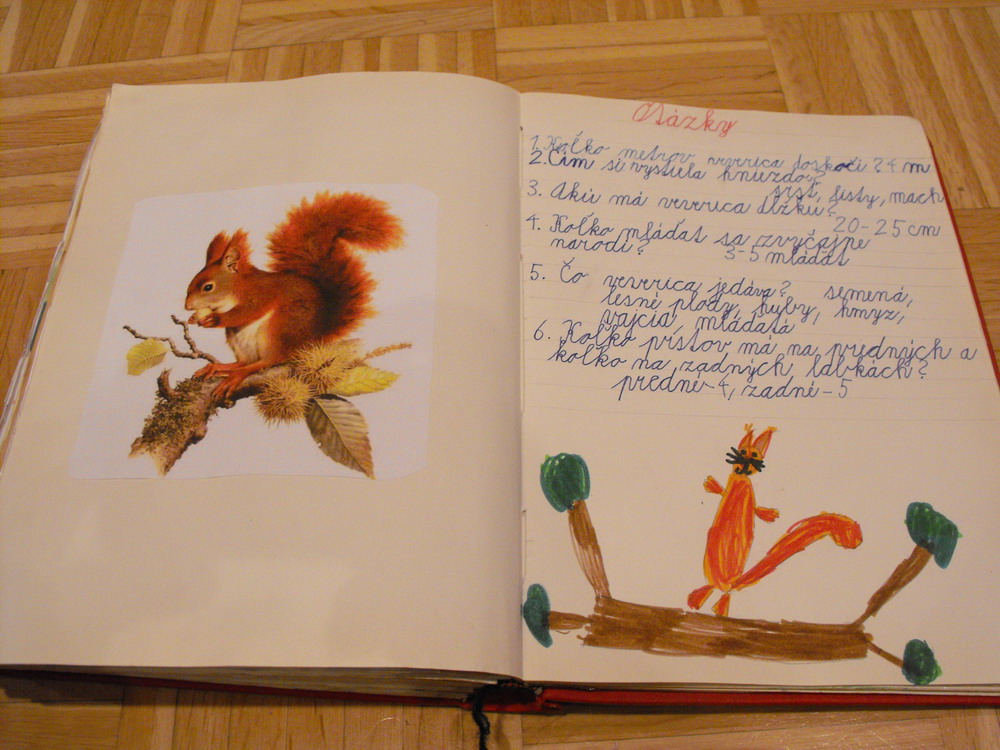 Otázky
1. Koľko metrov veverica doskočí? 4 m
2. Čím si vystiela hniezdo?
srsť, listy, mach
3. Akú má veverica dĺžku?
20-25 cm
4. Koľko mláďat sa zvyčajne
narodí? 3-5 mláďat
5. Čo veverica jedáva? semená,
lesné plody, huby, hmyz,
vajcia, mláďatá
6. Koľko prstov má na predných a
koľko na zadných labkách?
predné-4, zadné-5